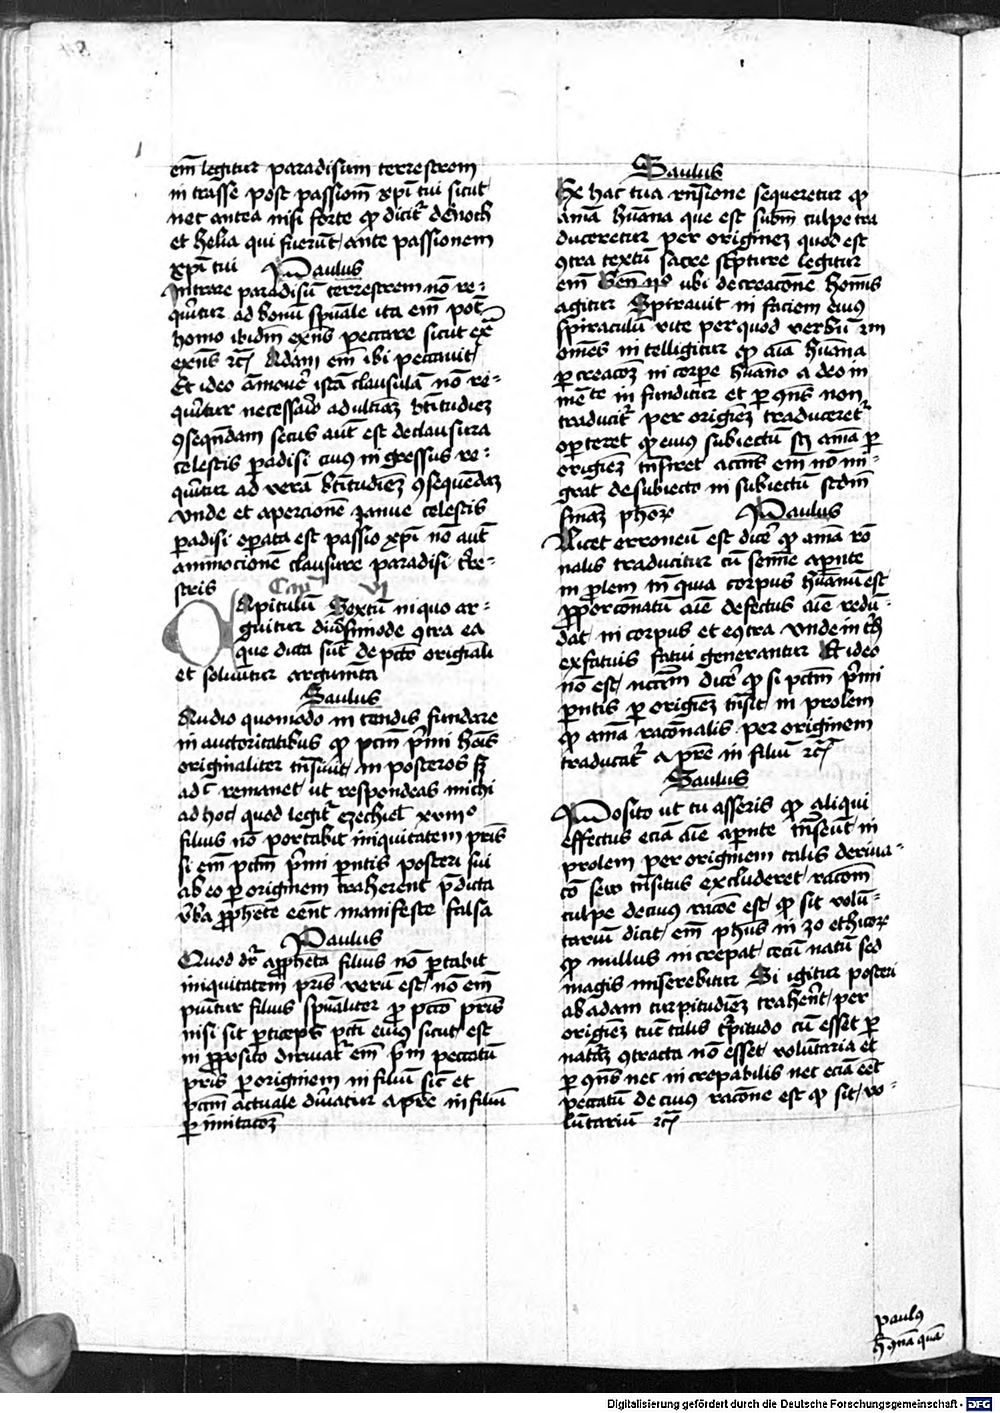 em̄ legitur paradisum terrestrem
in trasse post passiom̄ xp̄i tui sicut
nec antea nisi forte qp dicit̄ de Enoch
et helia qui fuerūt ante passionem
xp̄i tui Paulus
Intrare paradisū terrestrem nō re-
quiritur ad bonū sp̄uale ita em̄ pot̄
homo ibidm̄ exn̄s peccare sicut ex̄
exn̄s rc̄ Adam em̄ ibi peccavit
Et ideo āmouēr istā clausulā nō re-
quiritur necessario ad ultiaȝ btītudieȝ
ꝯseqn̄dam secus aut̄ est de clausura
celestis ꝑadisi cuiꝰ ingressus re-
quiritur ad verā btītudieȝ ꝯsequēdaȝ
vnde et apercionē Janue celestis
ꝑadisi oꝑata est passio xp̄i nō aut̄
ammocionē clausure paradisi tr̄re-
stris
Cap̄ VI
Capitulū Sextū in quo ar-
guitur diūsimode ꝯtra ea
que dicta sūt de pctō originali
et soluūtur argumta
Saulus
Audio quomodo in tendis fundare
in auctoritatibus qp pctm̄ p̄mi hoīs
originaliter trn̄siuit in posteros sꝫ
adc̄ remanet ut respondeas michi
ad hoc quod legit̄ ezechiel xviii°
filius nō portabit iniquitatem pris̄
si em̄ pctm̄ p̄mi ꝑentis posteri sui
ab eo ꝑ originem traherent p̄dicta
v̄ba ꝓphete eēnt manifeste falsa
Paulus
Quod dr̄ a ꝓpheta filius nō ꝑtabit
iniquitatem pris̄ verū est nō em̄
puītur filius sp̄ualiter ꝓ pctō pris̄
nisi sit ꝑticeps pcti eiuꝰ sicut est
in ꝓposito diriuat̄ em̄ p̄m peccatū
pris̄ ꝑ originem in filiū sic̄ et
pctm̄ actuale diriuatur a pre in filiū
ꝑ imitacoȝ
Saulus
Ex hac tua rn̄sione sequeretur qp
anīa hūana que est subm̄ culpe tra
duceretur per origineȝ quod est
ꝯtra textū sacre sc̄pture legitur
em̄ Gen̄ iiº ubi de creacōne homīs
agitur Spirauit in faciem eiuꝰ
spiraculū vite per quod verbū
omēs in telligitur qp aīa hūana
ꝑ creacoȝ in corꝑe hūano a deo in
mēte in funditur et ꝑ ꝯn̄s non
traducit̄ per origieȝ traduceret̄
oporteret qp eiuꝰ subiectū sꝫ anīa ꝑ
origieȝ trn̄siret accn̄s em̄ nō mi-
grat̄ de subiecto in subiectū scdm̄
sn̄iaȝ phōrꝝ Paulus
Licet erroneū est dicēr qp anīa rō
nalis traducitur cū semīe a ꝑente
in prolem tn̄ qua corpus hūanū est
ꝓporconatū aīe defectus aīe redū-
dāt in corpus et eꝯtra vnde
ex fatuis fatui generantur Et ideo
nō est dicēr qp si pctm̄ p̄mi
ꝑentis ꝑ origieȝ trn̄sit in prolem
qp anīa racōnalis per originem
traducat̄ a pre in filiū rc̄
Saulus
Posito ut tu asseris qp aliqui
effectus eciā aīe a ꝑente trn̄seūt in
prolem per originem talis deriua-
cō seu trn̄situs excluderet racōm
culpe de cuiꝰ racōe est qp sit volū-
tariū dicit em̄ phūs in 3o ethicorꝝ
qp nullus increpat cecū natū sed
magis miserebitur Si igitur posteri
ab adam turpitudieȝ trahēnt per
origieȝ tūc talis t̄pitudo cū esset ꝑ
naturaȝ ꝯtracta nō esset voluntaria et
ꝑ ꝯn̄s nec increpabilis nec eciā eēt
peccatū de cuiꝰ racōne est qp sit vo-
lūtariū rc̄
paulꝰ
Digitalisierung gefördert durch die Deutsche Forschungsgemeinschaft - DFG